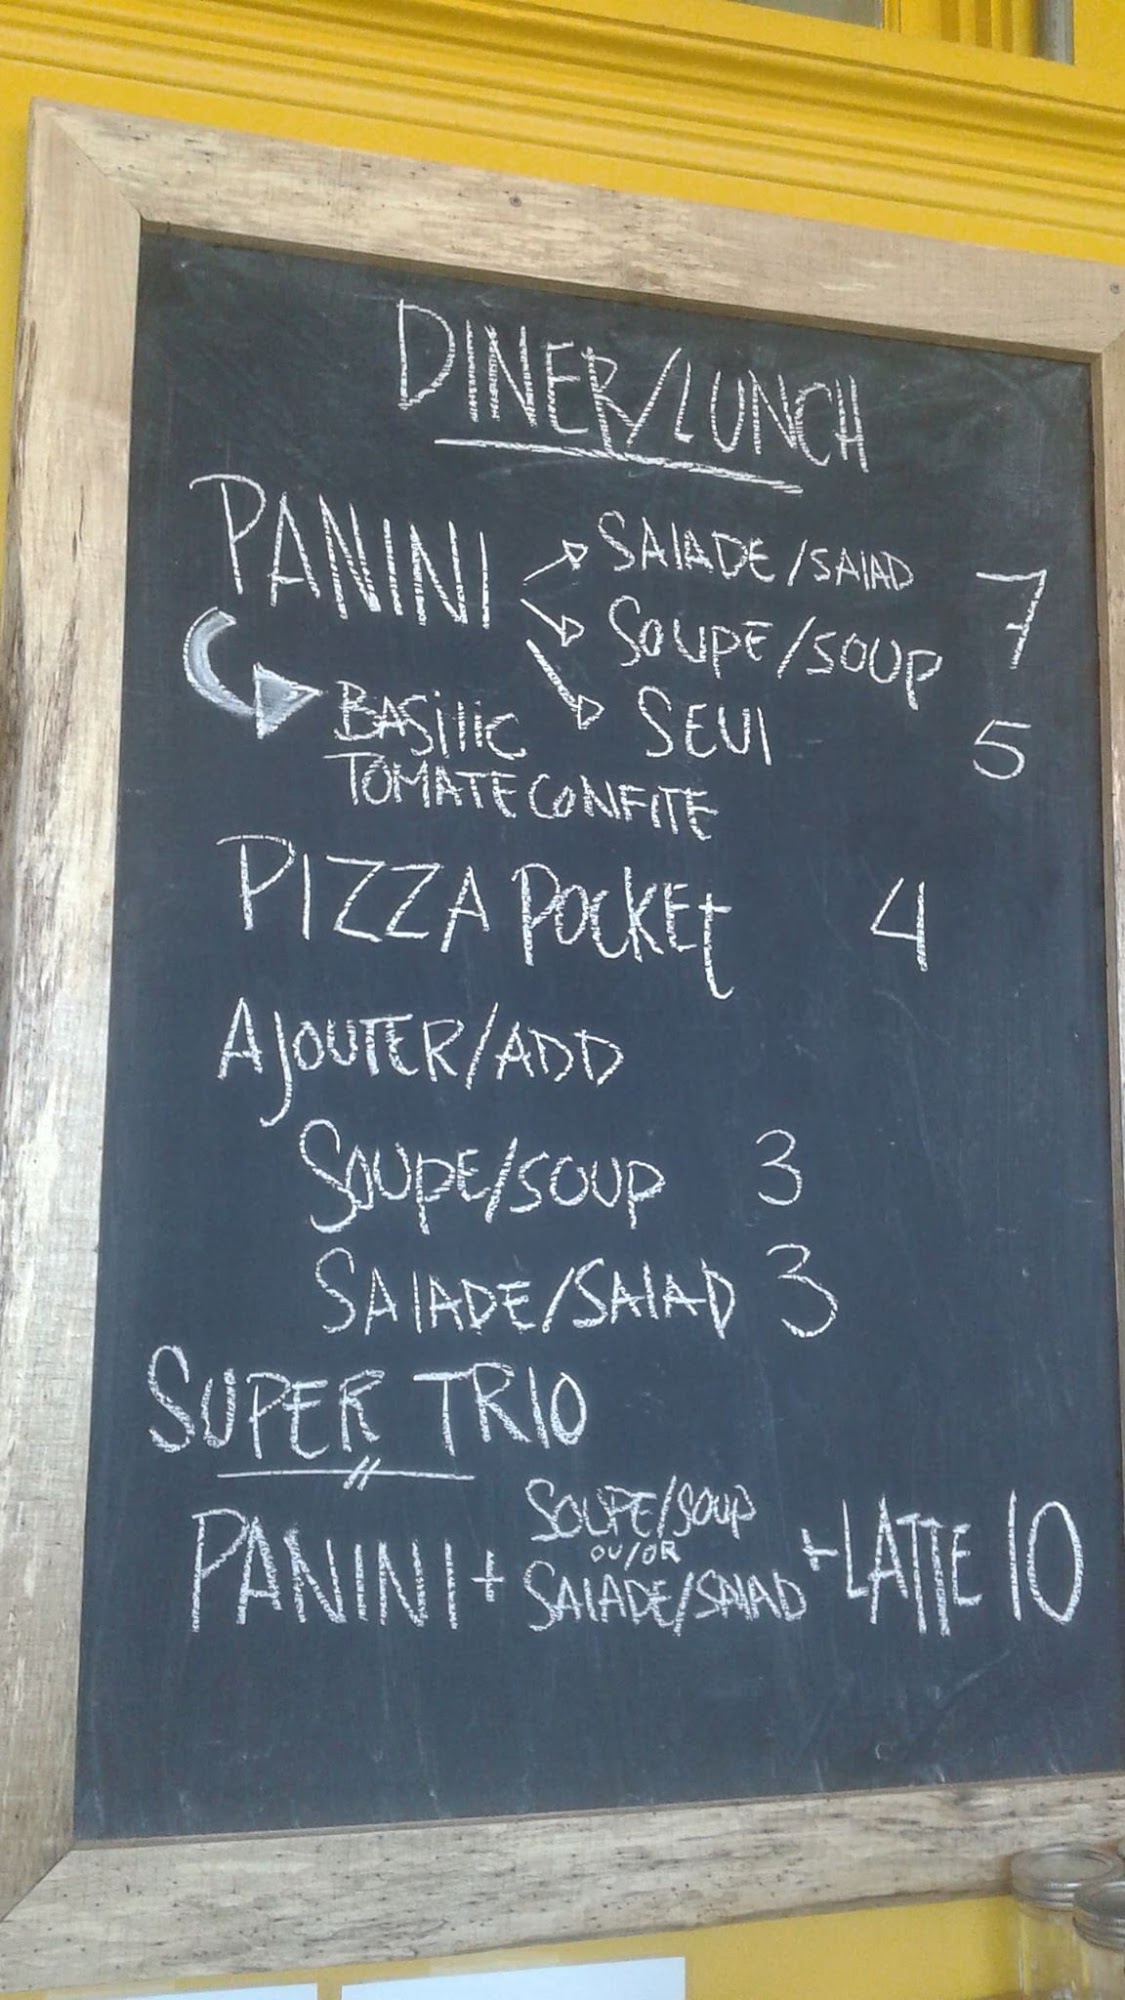 DINER/LUNCH
PANINI SALADE/SALAD 7
SOUPE/SOUP
SEUL 5
BASILIC
TOMATE CONFITE
PIZZA POCKET 4
AJOUTER/ADD
SOUPE/SOUP 3
SALADE/SALAD 3
SUPER TRIO
PANINI + SOUPE/SOUP OU/OR SALADE/SALAD + LATTE 10